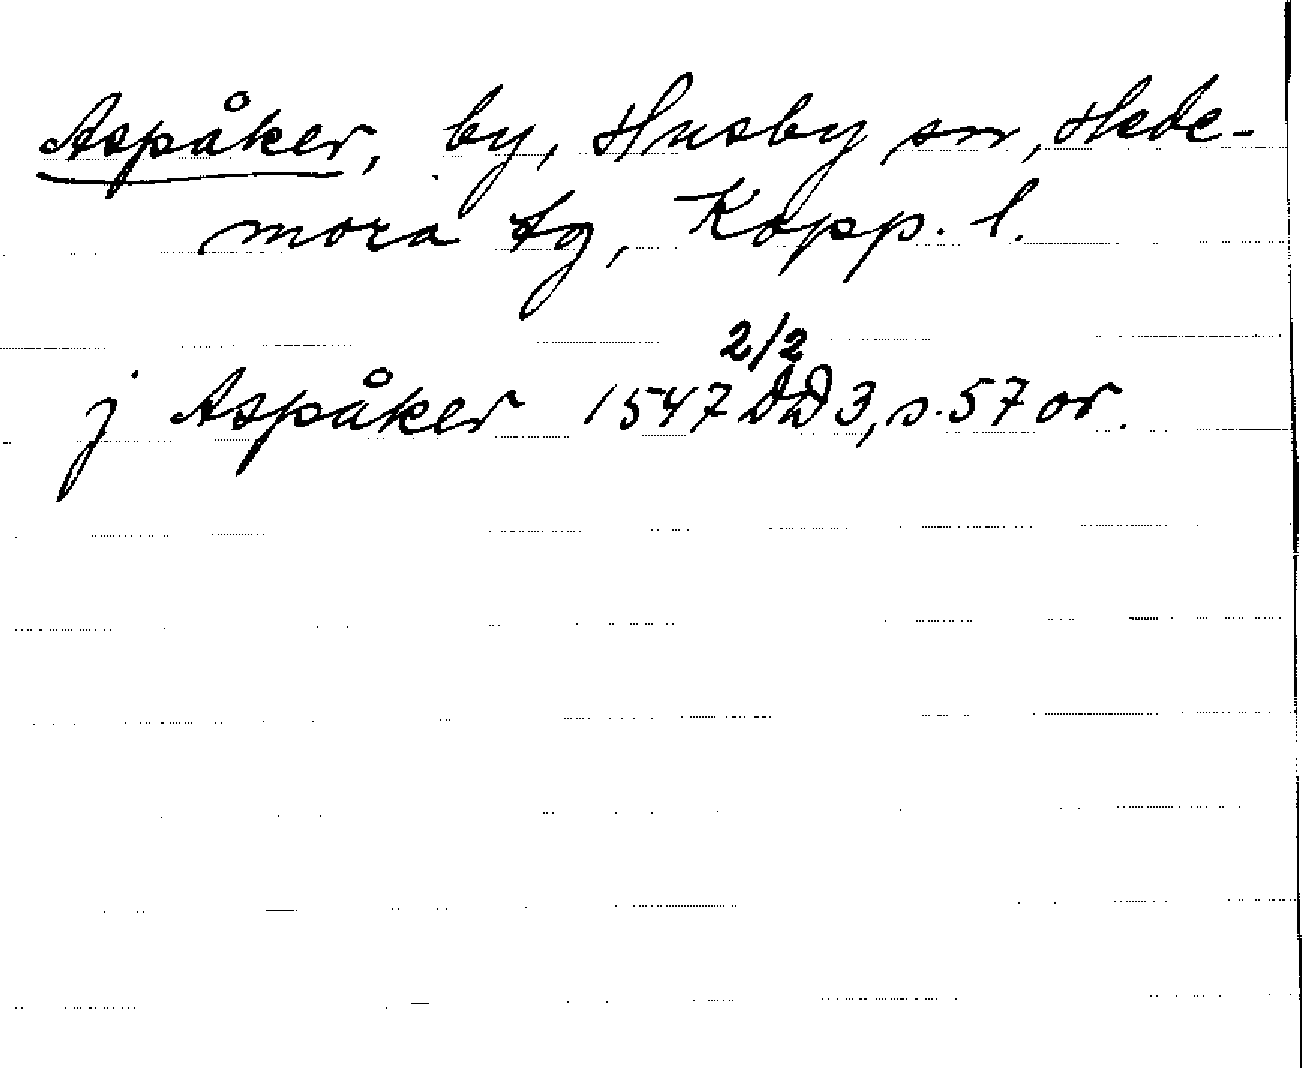 Aspåker, by, Husby sn, Hede-
mora tg, Kopp. l.
j Aspåker 1547 2/2 DD 3, s. 57 or.